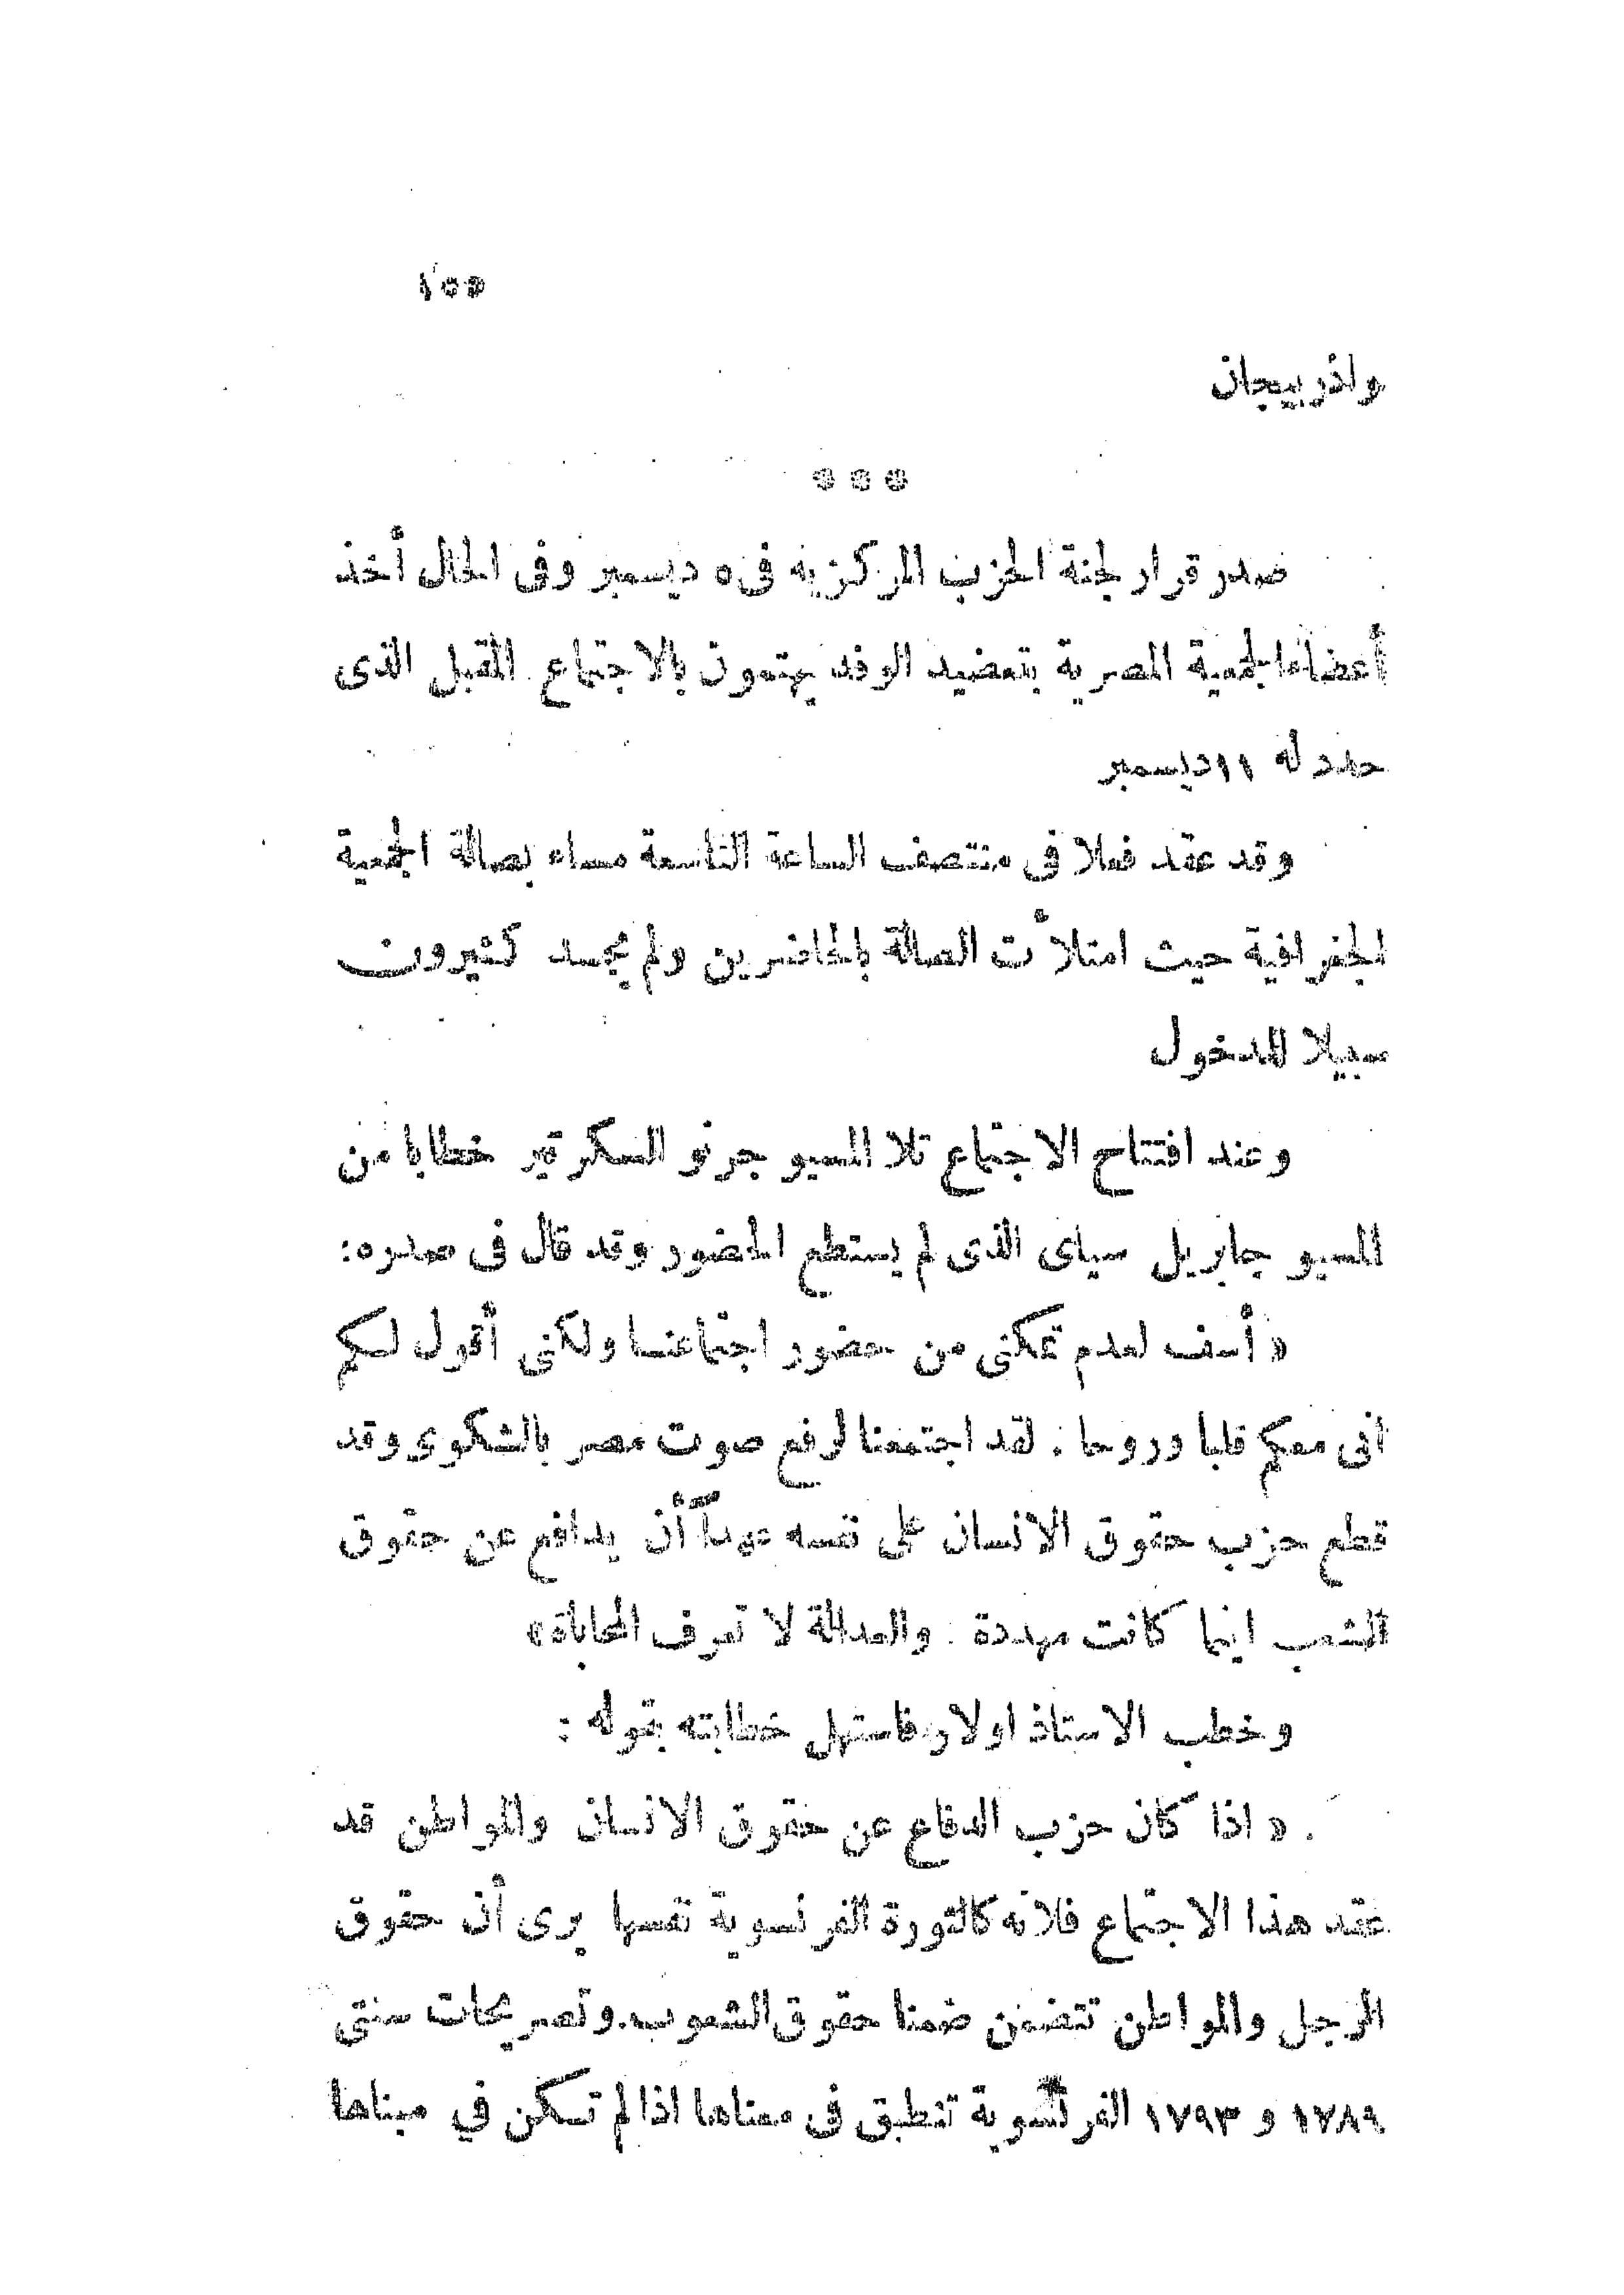 ١٥٥
واذربيجان
* * *
صدر قرار لجنة الحزب المركزيه فى ٥ ديسمبر وفى الحال أخذ
أعضاء الجمعية المصرية بتعضيد الوفد يهتمون بالاجتماع المقبل الذى
حدد له ١١ ديسمبر
وقد عقد فعلا فى منتصف الساعة التاسعة مساء بصالة الجمعية
الجغرافية حيث امتلأت الصالة بالحاضرين ولم يجد كثيرون
سبيلا للدخول
وعند افتتاح الاجتماع تلا المسيو جرنو السكرتير خطابا من
المسيو جابريل سياى الذى لم يستطع الحضور وقد قال فى صدره:
« أسف لعدم تمكنى من حضور اجتماعنا ولكنى أقول لكم
انى معكم قلبا وروحا . لقد اجتمعنا لرفع صوت مصر بالشكوى وقد
قطع حزب حقوق الانسان على نفسه عهداً أن يدافع عن حقوق
الشعب اينما كانت مهددة . والعدالة لا تعرف المحاباة»
وخطب الاستاذ اولار فاستهل خطابته بقوله :
« اذا كان حزب الدفاع عن حقوق الانسان والمواطن قد
عقد هذا الاجتماع فلانه كالثورة الفرنسوية نفسها يرى أن حقوق
الرجل والمواطن تتضمن ضمنا حقوق الشعوب. وتصريحات سنتى
١٧٨٩ و ١٧٩٣ الفرنسوية تنطبق فى معناها اذا لم تكن في مبناها